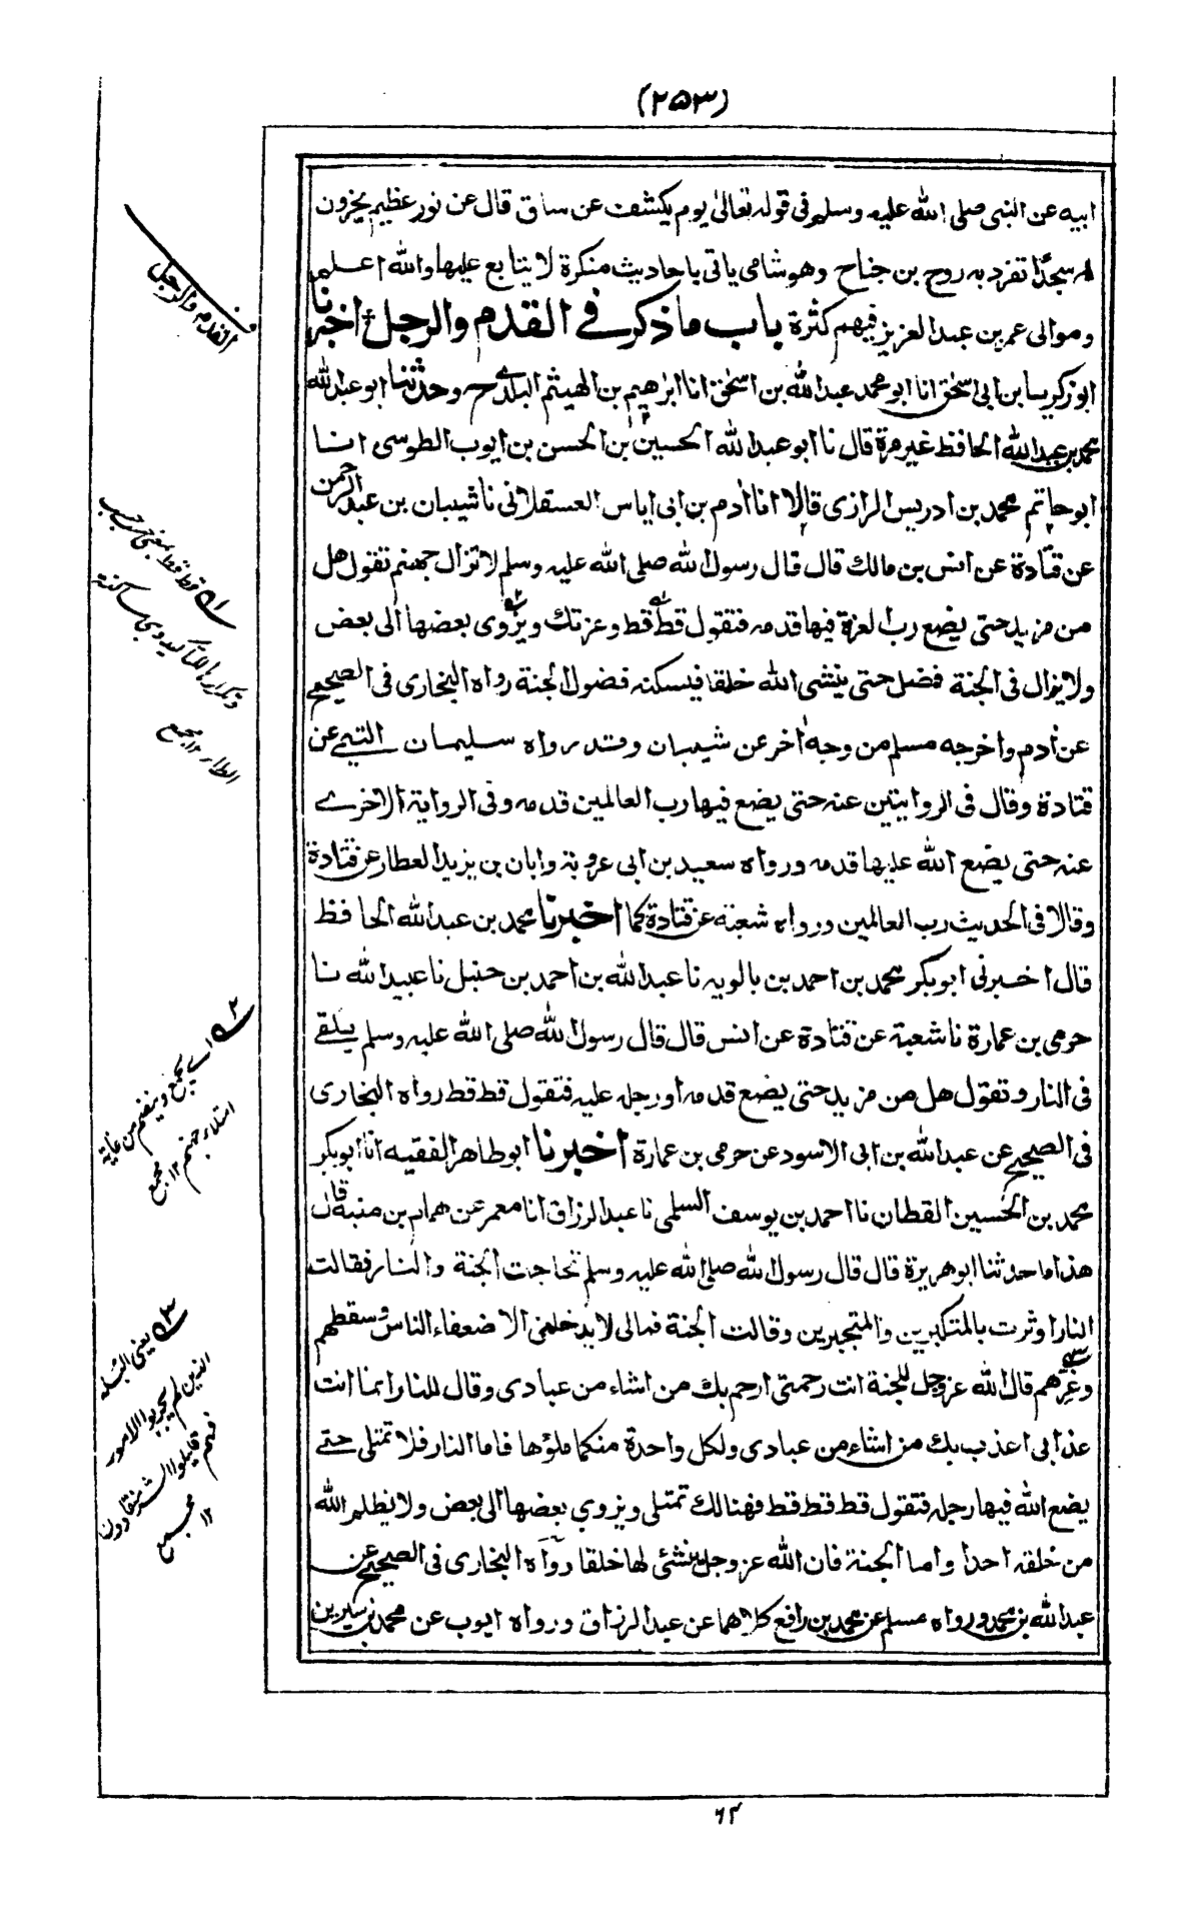 (٢٥٣)
ابيه عن النبى صلى الله عليه وسلم فى قوله تعالى يوم يكشف عن ساق قال عن نور عظيم يخرون
له سجدًا تفرد به روح بن جناح وهو شامى ياتى باحاديث منكرة لا يتابع عليها والله اعلم
وموالى عمر بن عبد العزيز فيهم كثرة باب ما ذكر فے القدم والرجل اخبرنا
ابو زكريا بن ابى اسحٰق انا ابو محمد عبد الله بن اسحٰق انا ابرٰهيم بن الهيثم البلدى ح وحدثنا ابو عبد الله
محمد بن عبد الله الحافظ غير مرة قال نا ابو عبد الله الحسين بن الحسن بن ايوب الطوسى انا
ابو حاتم محمد بن ادريس الرازى قالا انا اٰدم بن ابى اياس العسقلانى نا شيبان بن عبد الرحمن
عن قتادة عن انس بن مالك قال قال رسول الله صلى الله عليه وسلم لا تزال جهنم تقول هل
من مزيد حتى يضع رب العزة فيها قدمه فتقول قط قط وعزتك ويزوى بعضها الى بعض
ولا يزال فى الجنة فضل حتى ينشى الله خلقا فيسكنه فضول الجنة رواه البخارى فى الصحيح
عن اٰدم واخرجه مسلم من وجه اٰخر عن شيبان وقد رواه سليمان التيمى عن
قتادة وقال فى الروايتين عنه حتى يضع فيها رب العالمين قدمه وفى الرواية الاخرے
عنه حتى يضع الله عليها قدمه ورواه سعيد بن ابى عروبة وابان بن يزيد العطار عن قتادة
وقالا فى الحديث رب العالمين ورواه شعبة عن قتادة كما اخبرنا محمد بن عبد الله الحافظ
قال اخبرنى ابو بكر محمد بن احمد بن بالويه نا عبد الله بن احمد بن حنبل نا عبيد الله نا
حرمى بن عمارة نا شعبة عن قتادة عن انس قال قال رسول الله صلى الله عليه وسلم يلقے
فى النار وتقول هل من مزيد حتى يضع قدمه او رجله عليه فتقول قط قط رواه البخارى
فى الصحيح عن عبد الله بن ابى الاسود عن حرمى بن عمارة اخبرنا ابو طاهر الفقيه انا ابو بكر
محمد بن الحسين القطان نا احمد بن يوسف السلمى نا عبد الرزاق انا معمر عن همام بن منبه قال
هذا ما حدثنا ابو هريرة قال قال رسول الله صلى الله عليه وسلم تحاجت الجنة والنار فقالت
النار اوثرت بالمتكبرين والمتجبرين وقالت الجنة فمالى لا يدخلنى الا ضعفاء الناس وسقطهم
وغرهم قال الله عز وجل للجنة انت رحمتى ارحم بك من اشاء من عبادى وقال للنار انما انت
عذابى اعذب بك من اشاء من عبادى ولكل واحدة منكما ملؤها فاما النار فلا تمتلى حتے
يضع الله فيها رجله فتقول قط قط قط فهنالك تمتلى ويزوي بعضها الى بعض ولا يظلم الله
من خلقه احدا واما الجنة فان الله عز وجل ينشئ لها خلقا رواه البخارى فى الصحيح عن
عبد الله بن محمد ورواه مسلم عن محمد بن رافع كلاهما عن عبد الرزاق ورواه ايوب عن محمد بن سيرين
القدم والرجل
له قط قط بمعنى حسب
وتكراره للتاكيد وى بساكنة
الطاء ١٢ مجمع
٢ اے يجمع وينضم من غاية
امتلاء جهنم ١٢ مجمع
٣ يعنى البله
الذين لم يجربوا الامور
فهم قليلوا الشر منقادون
١٢ مجمع
٦٤